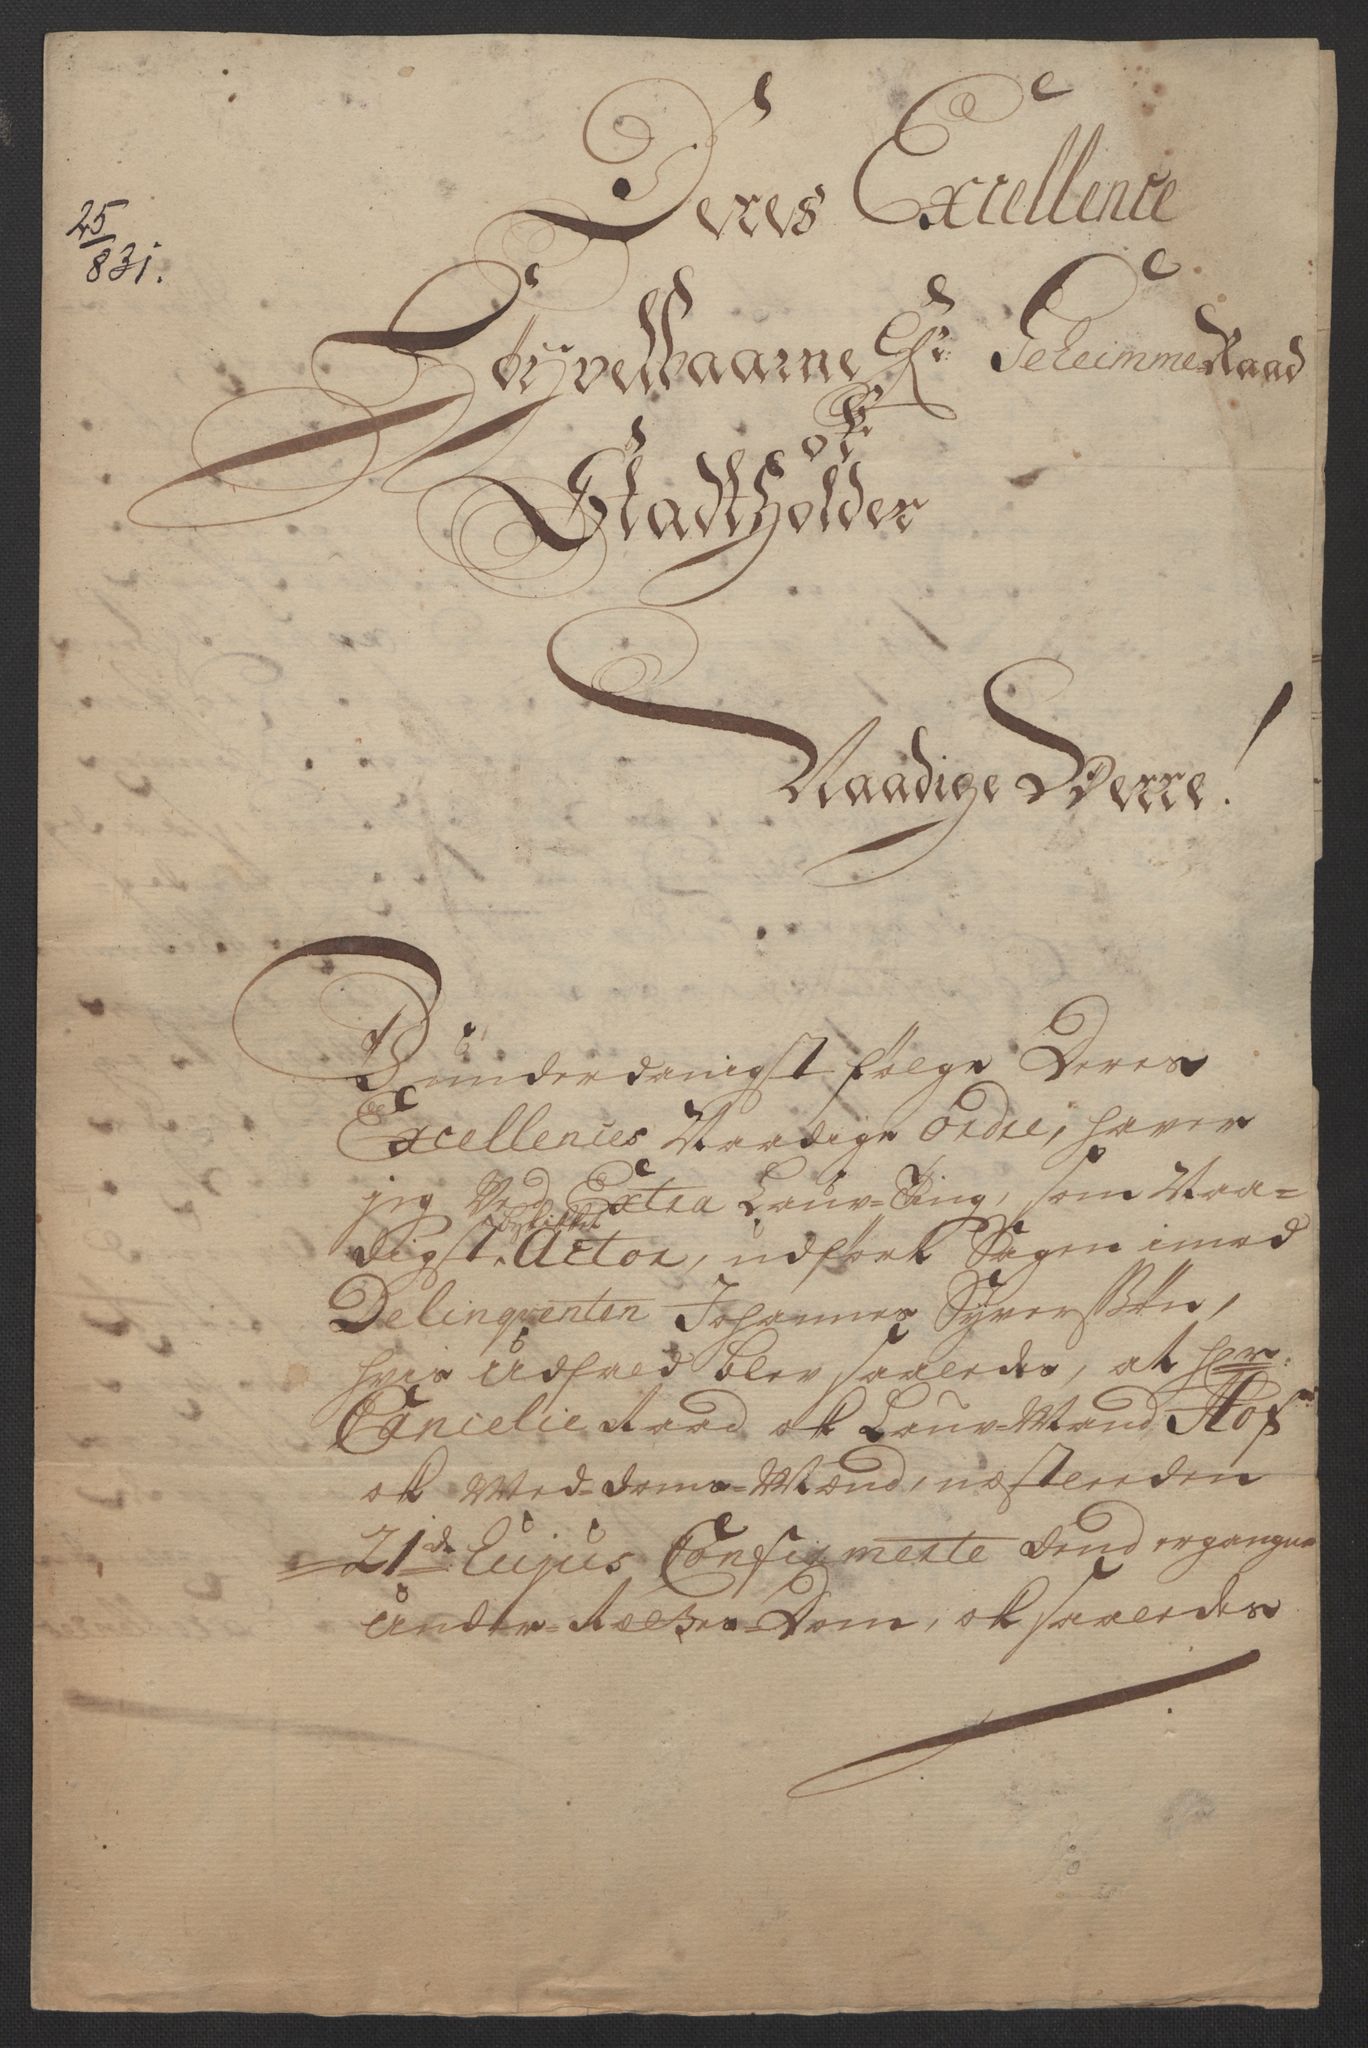 25
831.
Deres Excellence
Høyvelbaarne Hr: Geheimme Raad
og
Stadtholder
Naadige Herre!
Underdanigst følge Deres
Excellences Naadige Ordre, haver
jeg Ved Extra Lauv=Ting, som Naa=
beskikket
digst Actor, udført Sagen imod
Delinqventen Johannes Syversßøn,
hvis Udfald blev saaledes, at Hr:
Cancelie Raad og Lauv=Mand
og Med=doms=Mænd, næstleeden
21de hujus Confirmerte dend ergangne
Under=Rættes=Dom, og saaledes